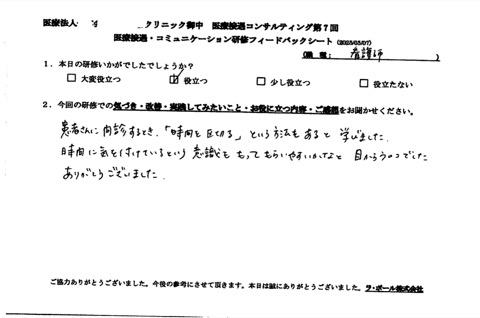 医療法人 クリニック御中 医療接遇コンサルティング第7回
医療接遇・コミュニケーション研修フィードバックシート(2025/05/07)
(職種: 看護師 )
1.本日の研修いかがでしたでしょうか?
□ 大変役立つ ☑ 役立つ □ 少し役立つ □ 役立たない
2.今回の研修での気づき・改善・実践してみたいこと・お役に立つ内容・ご感想をお聞かせください。
患者さんに問診するとき、「時間を区切る」という方法もあると学びました。
時間に気を付けているという意識をもってもらいやすいかなと目からウロコでした
ありがとうございました。
ご協力ありがとうございました。今後の参考にさせて頂きます。本日は誠にありがとうございました。ラ・ポール株式会社